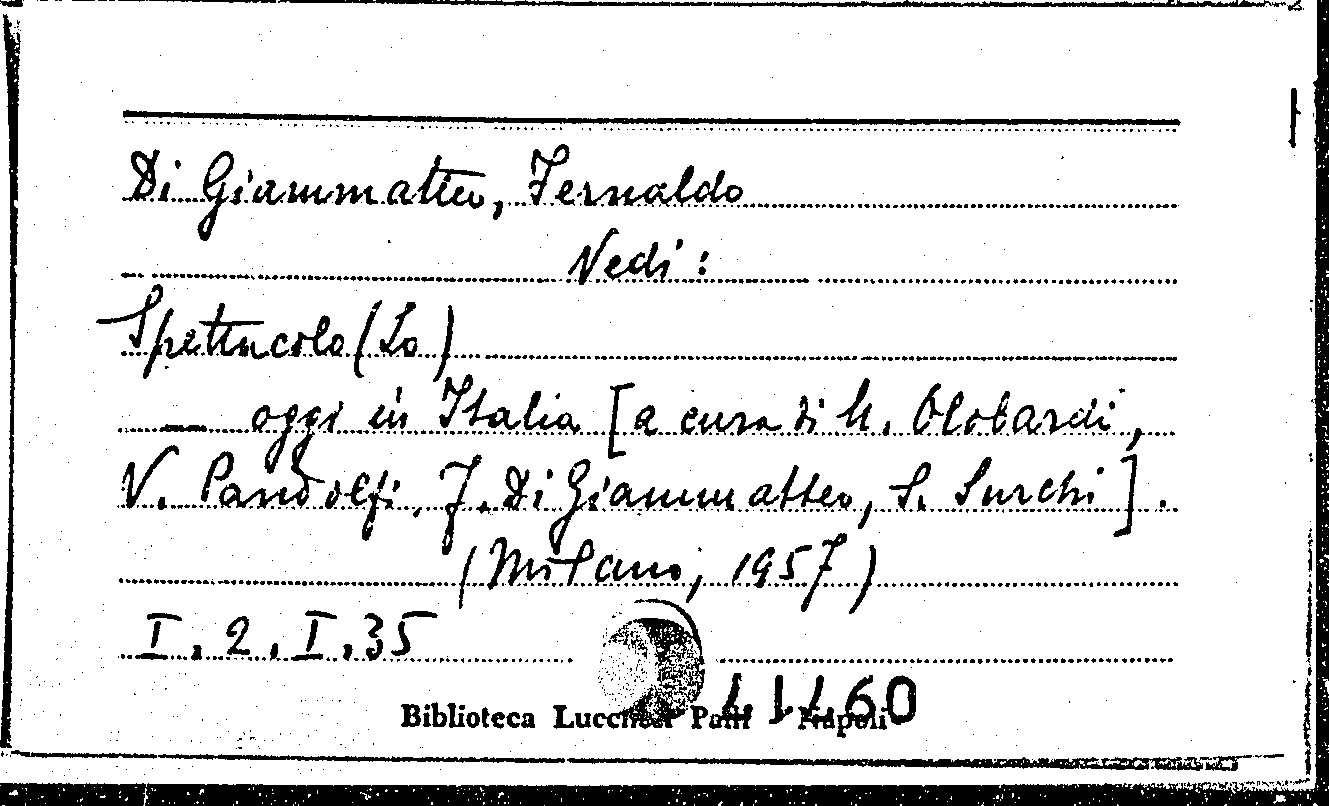 Di Giammatteo, Fernaldo
Vedi:
Spettacolo (Lo)
— oggi in Italia [a cura di M. Olobardi,
V. Pandolfi, F. Di Giammatteo, S. Surchi].
(Milano, 1957)
I.2.I.35
Biblioteca Lucchesi Palli Napoli